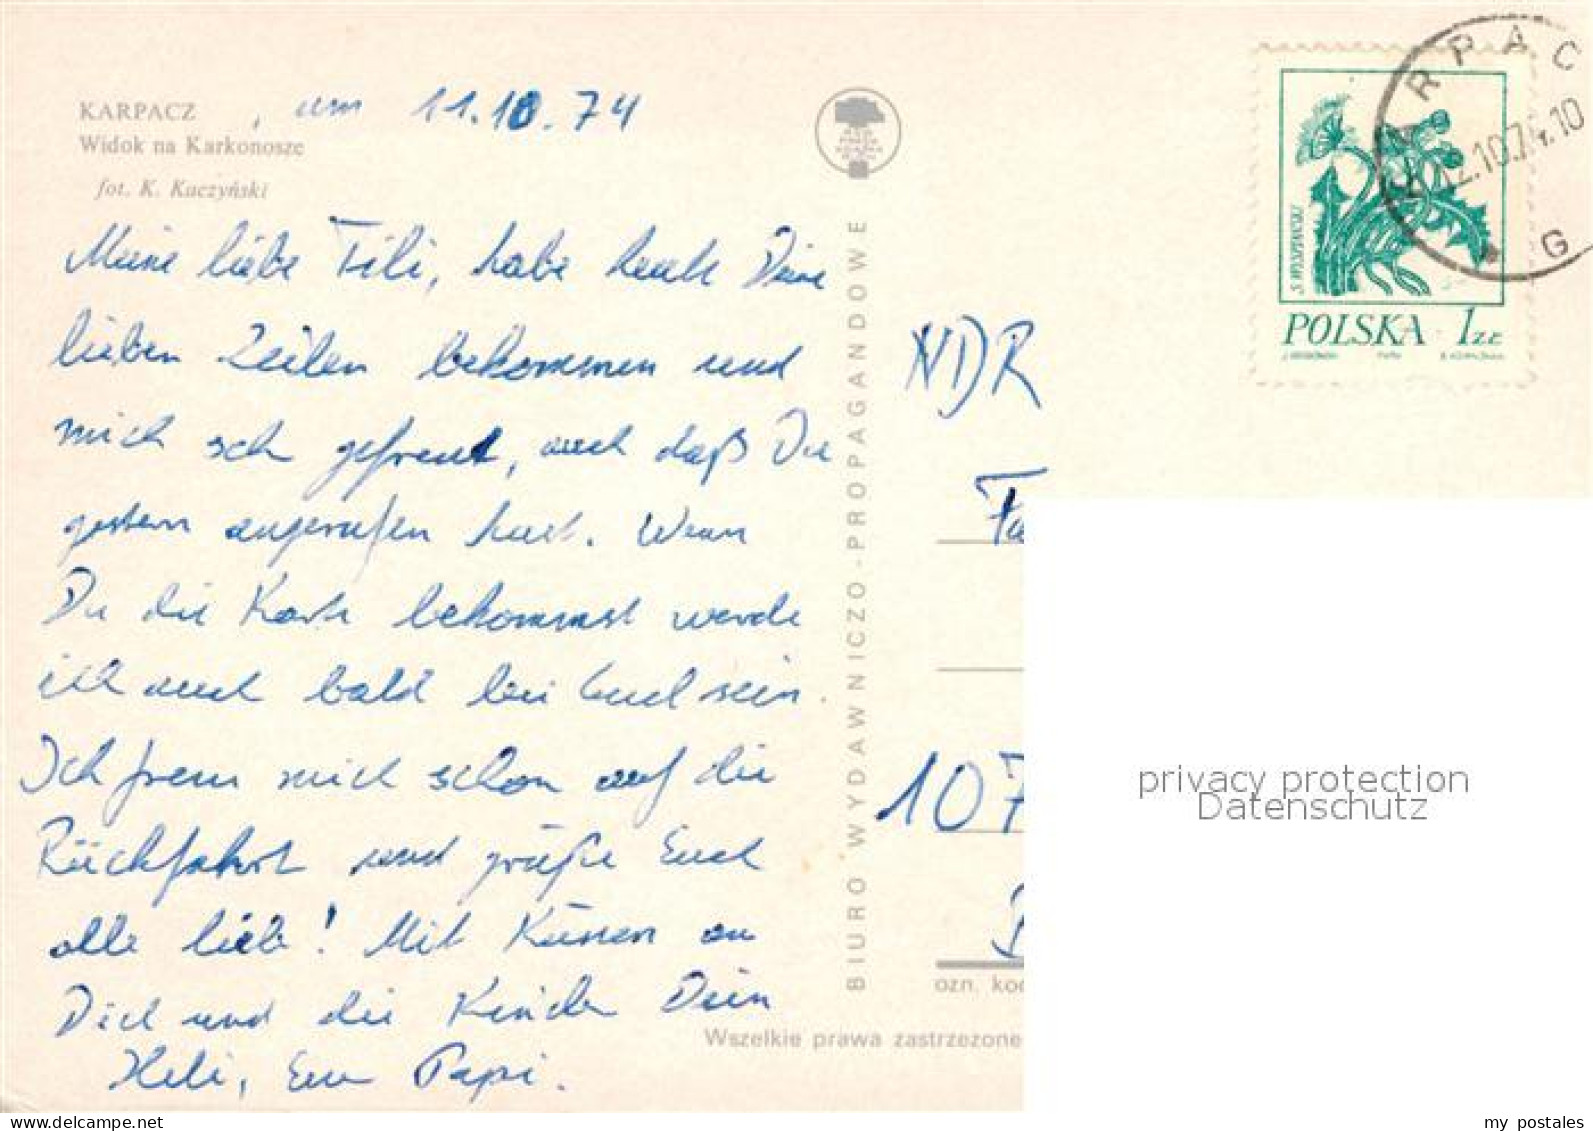 KARPACZ , am 11.10.74
Widok na Karkonosze
fot. K. Kaczyński
Meine liebe Fili, habe heute Deine
lieben Zeilen bekommen und
mich sch gefreut, auch daß Du
gestern angerufen hast. Wenn
Du die Karte bekommst werde
ich auch bald bei Euch sein.
Ich freue mich schon auf die
Rückfahrt und grüße Euch
alle lieb! Mit Küssen an
Dich und die Kinder Dein
Heli, Euer Papi.
BIURO WYDAWNICZO-PROPAGANDOWE
NDR
Fa
107
ozn. kod
Wszelkie prawa zastrzeżone
S. WYSPIAŃSKI
POLSKA 1 ZŁ
ARPAC
12.10.74.10
G
privacy protection
Datenschutz
my_postales
www.delcampe.net